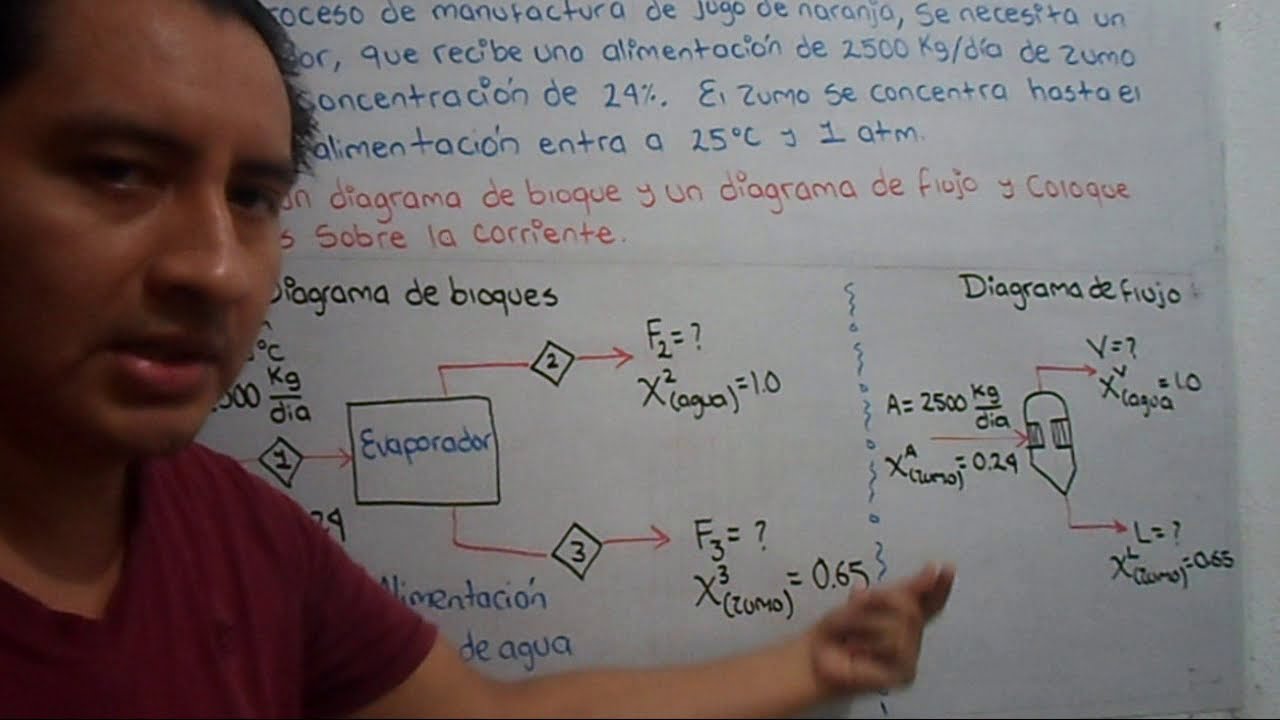 roceso de manufactura de jugo de naranja, se necesita un
or, que recibe una alimentación de 2500 Kg/día de zumo
concentración de 24%. El zumo se concentra hasta el
alimentación entra a 25°C y 1 atm.
un diagrama de bloque y un diagrama de flujo y coloque
s sobre la corriente.
Diagrama de bloques
Diagrama de flujo
°C
500 Kg/día
1
Evaporador
2
F₂ = ?
X²(agua) = 1.0
3
F₃ = ?
X³(zumo) = 0.65
Alimentación
de agua
V = ?
Xⱽ(agua = 1.0
A = 2500 Kg/día
Xᴬ(zumo) = 0.24
L = ?
Xᴸ(zumo) = 0.65